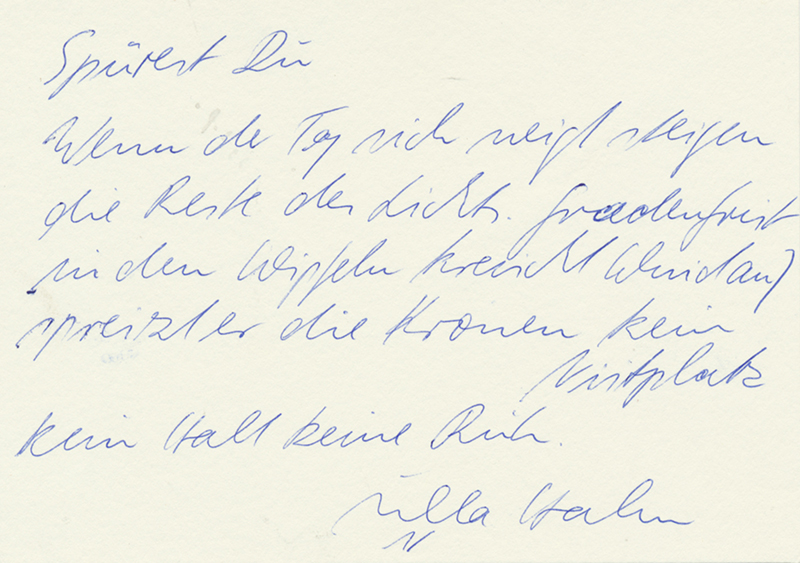 Spürest Du
Wenn der Tag sich neigt steigen
die Reste des Lichts. Gnadenfrist
in den Wipfeln kreischt Wind auf
spreizt er die Kronen kein
Nistplatz
kein Halt keine Ruh.
Ulla Hahn